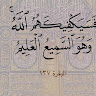 فَسَيَكْفِيكَهُمُ اللَّهُ ۚ
وَهُوَ السَّمِيعُ الْعَلِيمُ
البقرة ١٣٧